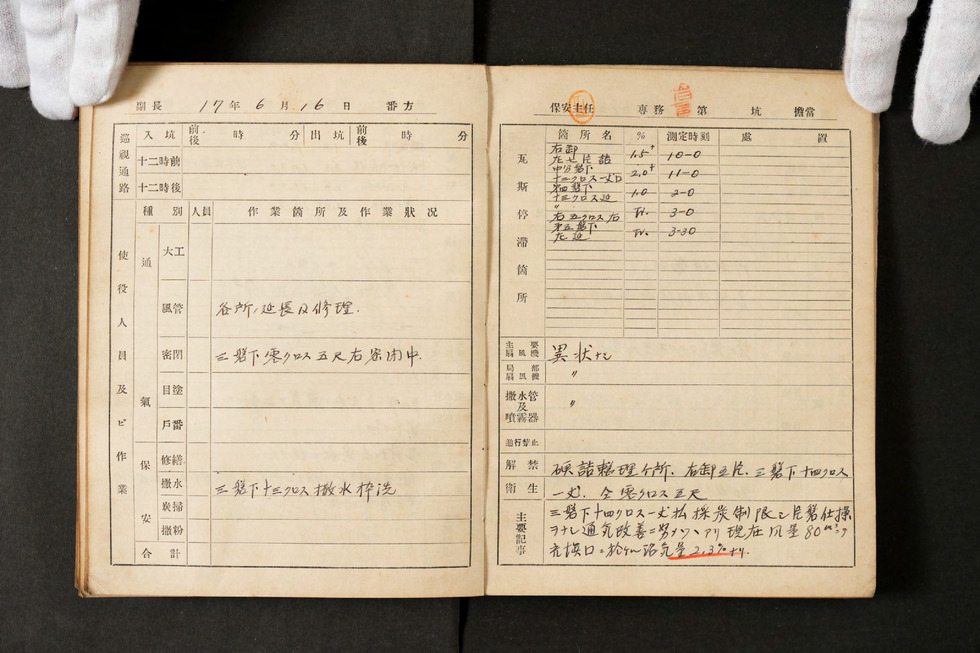 副長 17年6月16日 番方
巡視通路 入坑 前後 時 分 出坑 前後 時 分
十二時前
十二時後
使役人員及ビ作業
種別 人員 作業箇所及作業狀况
通氣
大工
風管 各所ノ延長及修理.
密閉 三盤下零クロス五尺右密閉中.
目塗
戶番
保安
修繕
撒水 三盤下十三クロス撒水枠洗
炭掃
撒粉
合計
保安主任 専務 第 坑 擔當
瓦斯停滯箇所
箇所名 % 測定時刻 處置
右卸 1.5+ 10-0
2.0+ 11-0
1.0 2-0
〃 右五クロス右 Tr. 3-0
Tr. 3-30
主要扇風機 異状ナシ
局部扇風機 〃
撒水管及噴霧器 〃
進行禁止
解禁 硬詰整理箇所. 右卸五片. 三盤下十四クロス
衛生 一丈. 仝零クロス五尺
主要記事
三盤下十四クロス一丈払採炭制限シ片盤仕操
ヲナシ通気改善ニ努メツヽアリ現在風量80
2.3%ナリ.